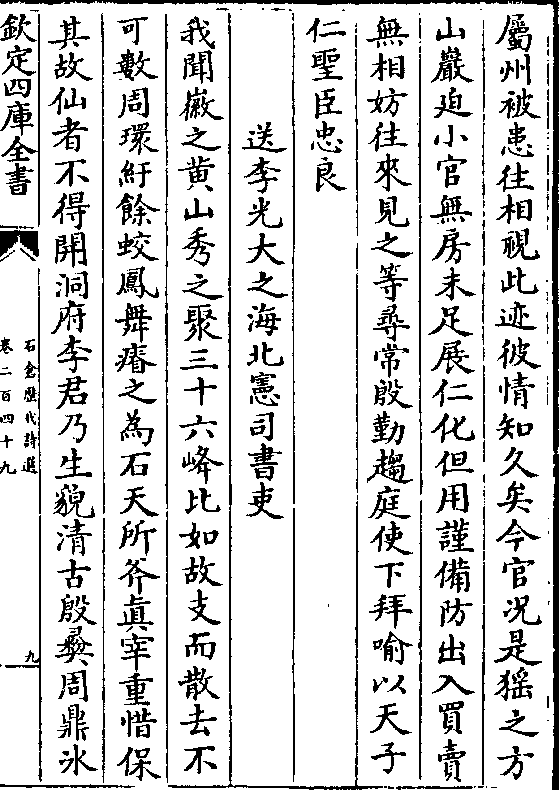 屬州被患往相視此迹彼情知久矣今官况是猺之方
山巖迫小官無房未足展仁化但用謹備防出入買賣
無相妨往來見之等尋常殷勤趨庭使下拜喻以天子
仁聖臣忠良
送李光大之海北憲司書吏
我聞徽之黄山秀之聚三十六峰比如故支而散去不
可數周環紆餘蛟鳳舞瘠之為石天所斧真宰重惜保
其故仙者不得開洞府李君乃生貌清古殷彛周鼎氷
欽定四庫全書
石倉歷代詩選
卷二百四十九
九